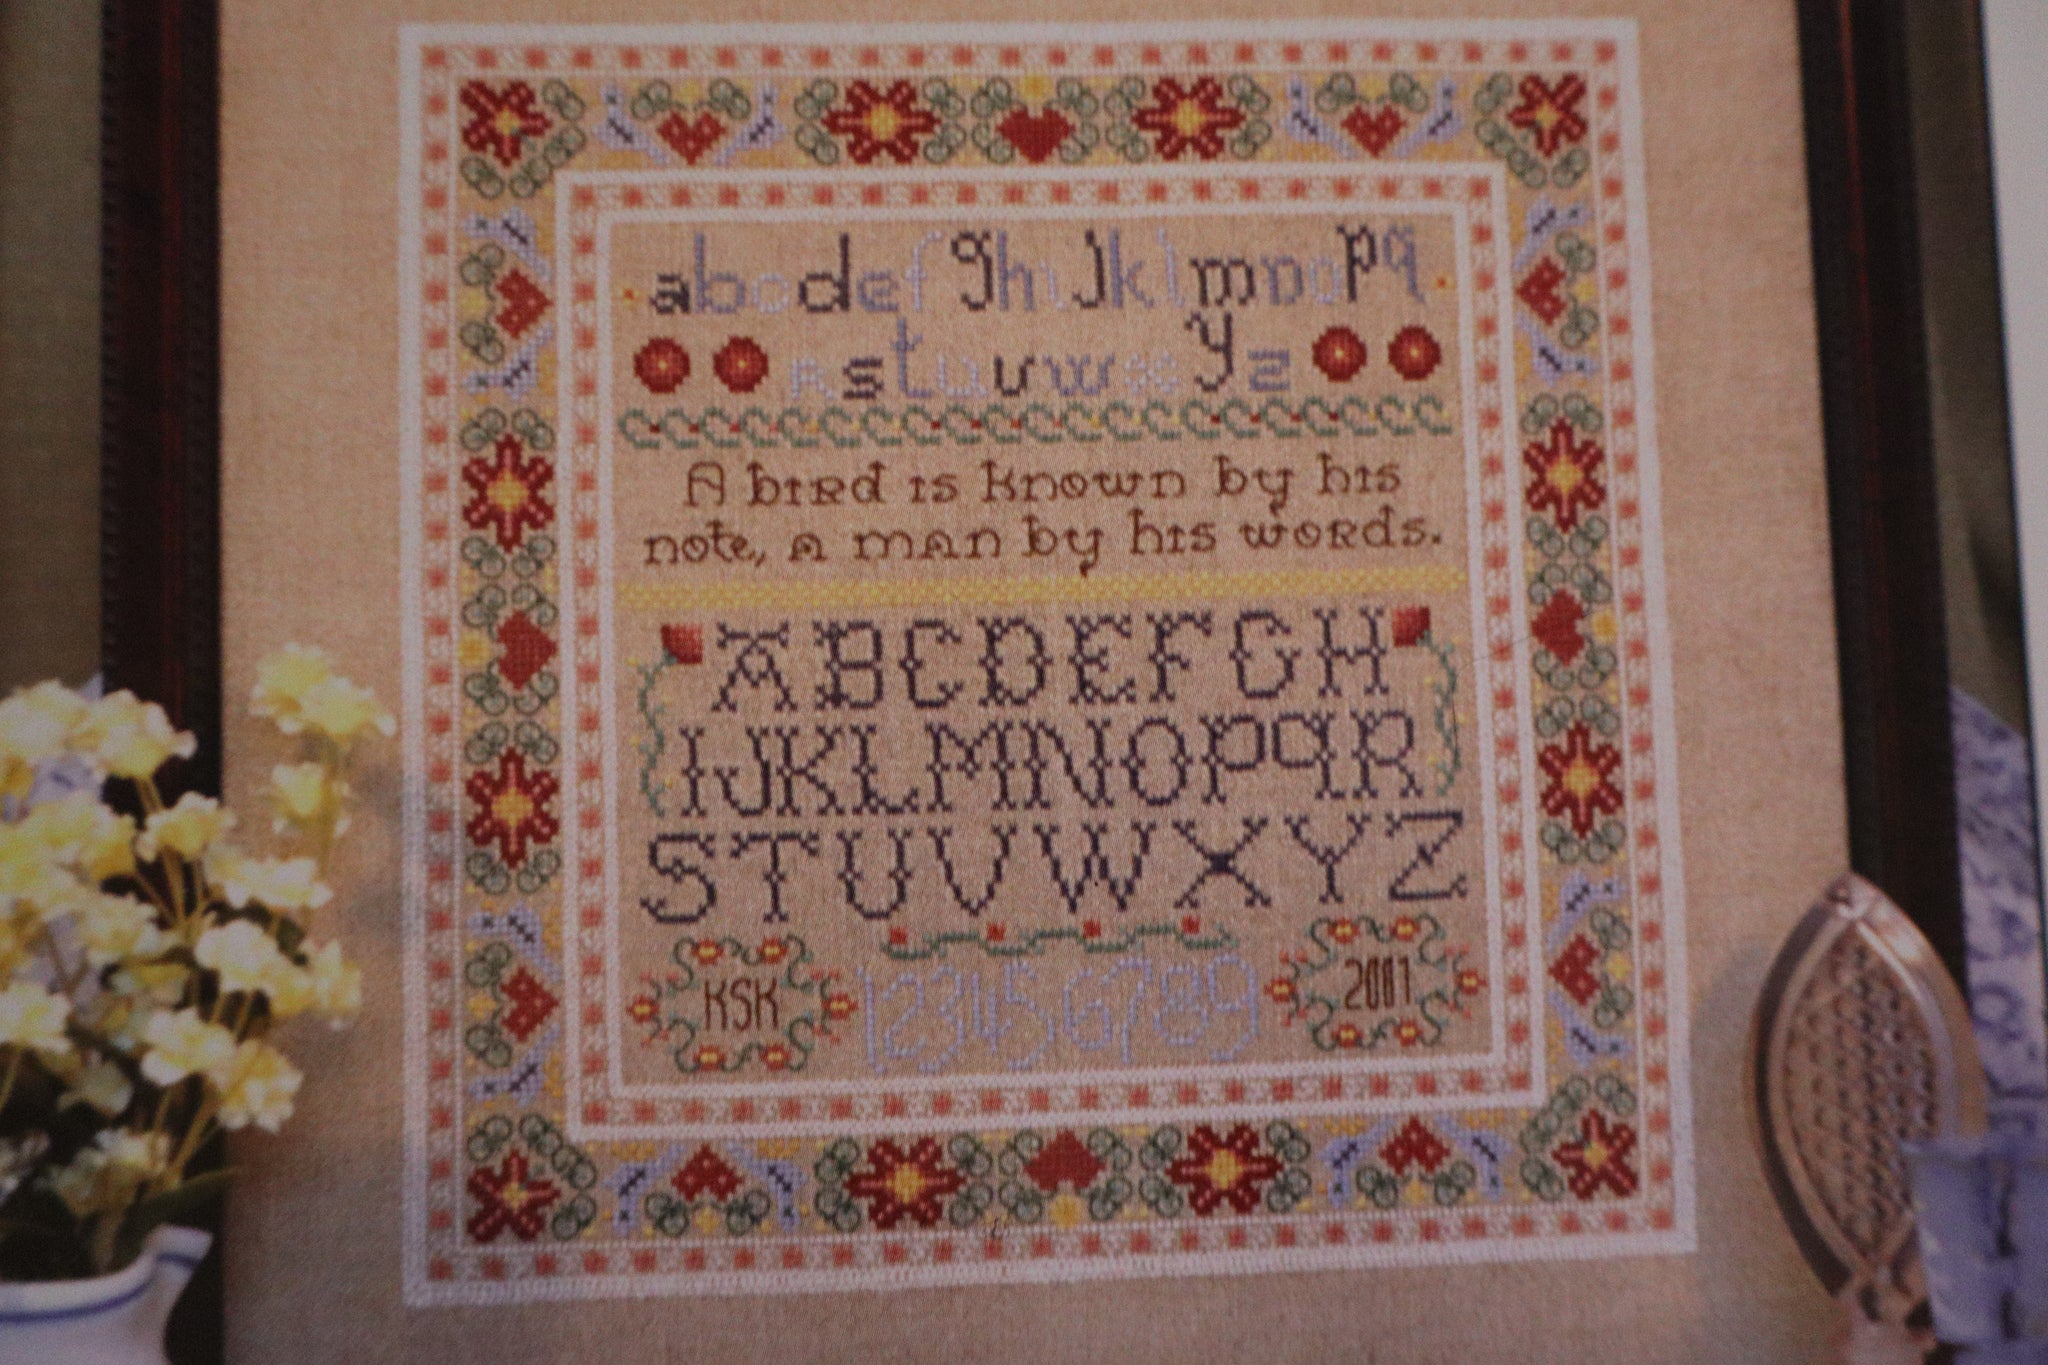 abcdefghijklmnopq
rstuvwxyz
A bird is known by his
note, a man by his words.
ABCDEFGH
IJKLMNOPQR
STUVWXYZ
KSK 123456789 2001